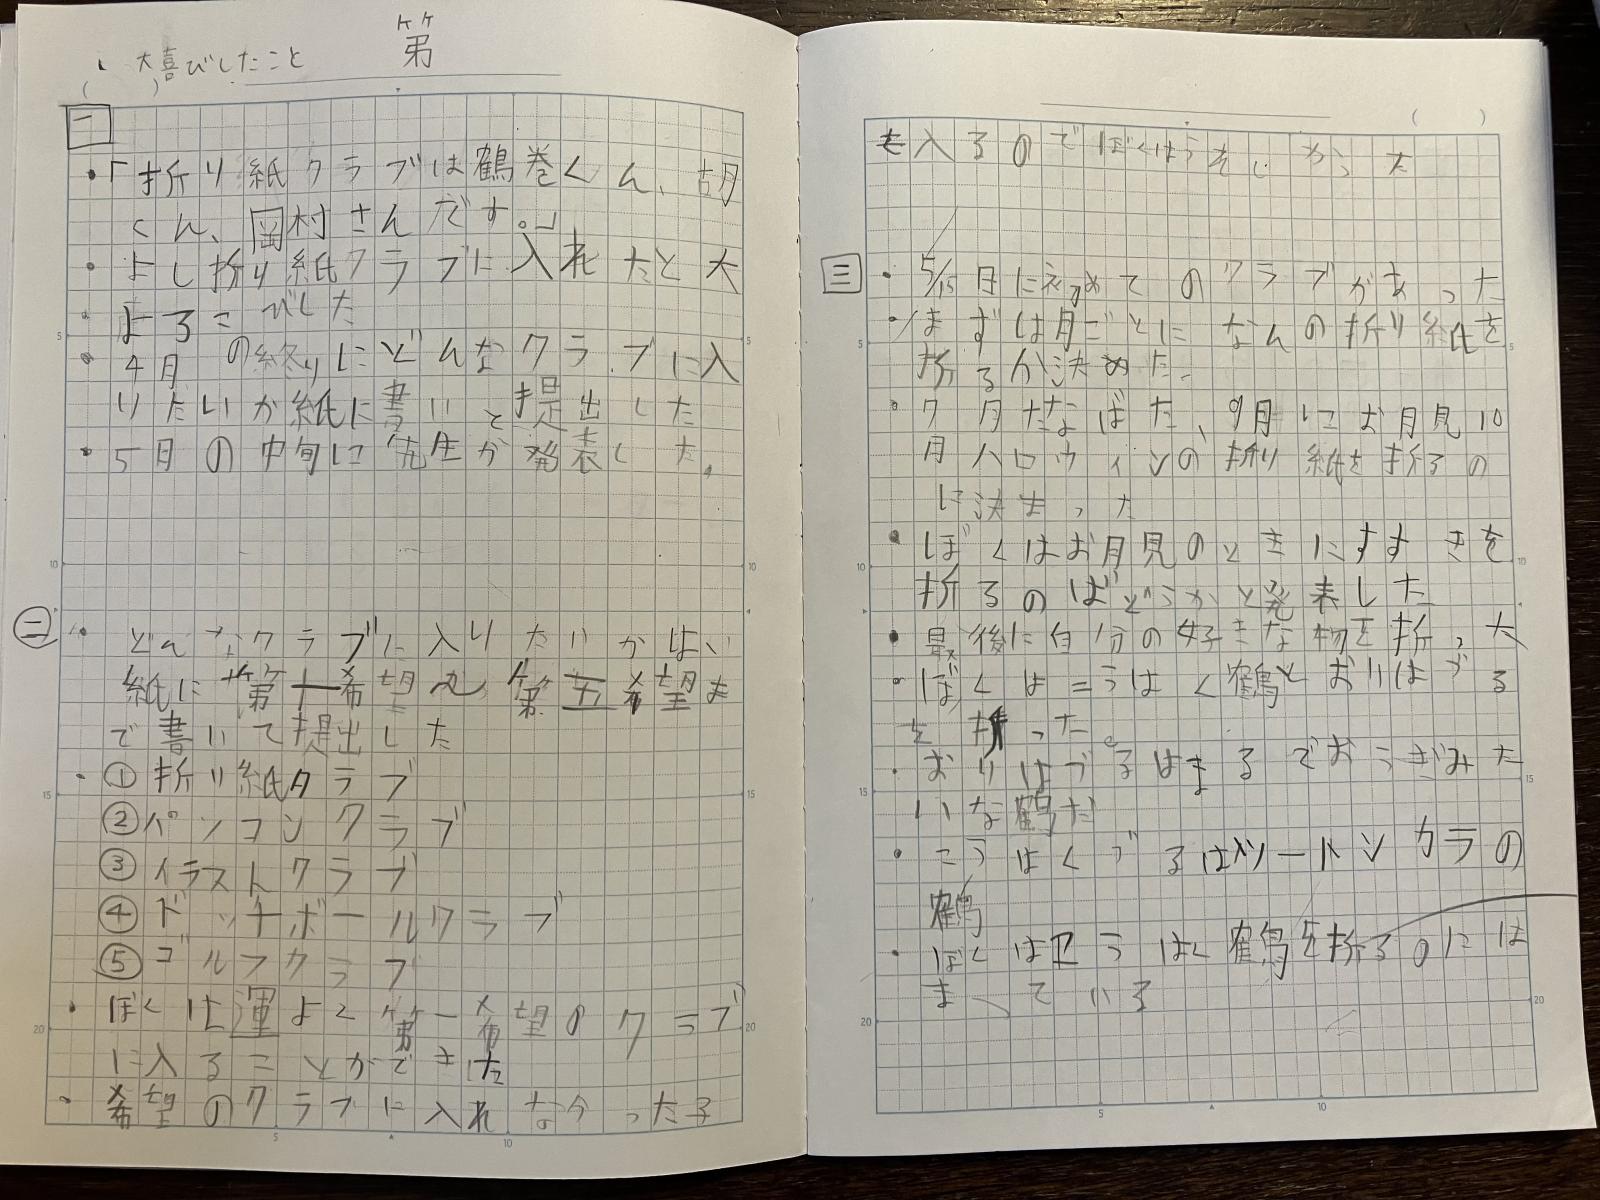 大喜びしたこと
第
一
・「折り紙クラブは鶴巻くん、胡
くん、岡村さんだす。」
・よし折り紙クラブに入れたと大
よろこびした
・4月の終りにどんなクラブに入
りたいか紙に書いて提出した
・5月の中旬に先生が発表した。
二
・どんなクラブに入りたいかはい
紙に第一希望から第五希望ま
で書いて提出した
・①折り紙クラブ
②パソコンクラブ
③イラストクラブ
④ドッチボールクラブ
⑤ゴルフクラブ
・ぼくは運よく第一希望のクラブ
に入ることができた
・希望のクラブに入れなかった子
も入るのでぼくはうれしかった
三
・5/15日に初めてのクラブがあった
・まずは月ごとになんの折り紙を
折るか決めた。
・7月たなばた、9月にお月見10
月ハロウィンの折り紙を折るの
に決まった
・ぼくはお月見のときにすすきを
折るのはどうかと発表した
・最後に自分の好きな物を折った
・ぼくはこうはく鶴とおりはづる
を折った。
・おりはづるはまるでおうぎみた
いな鶴だ
・こうはくづるはツートンカラの
鶴
・ぼくはこうはく鶴を折るのには
まっている